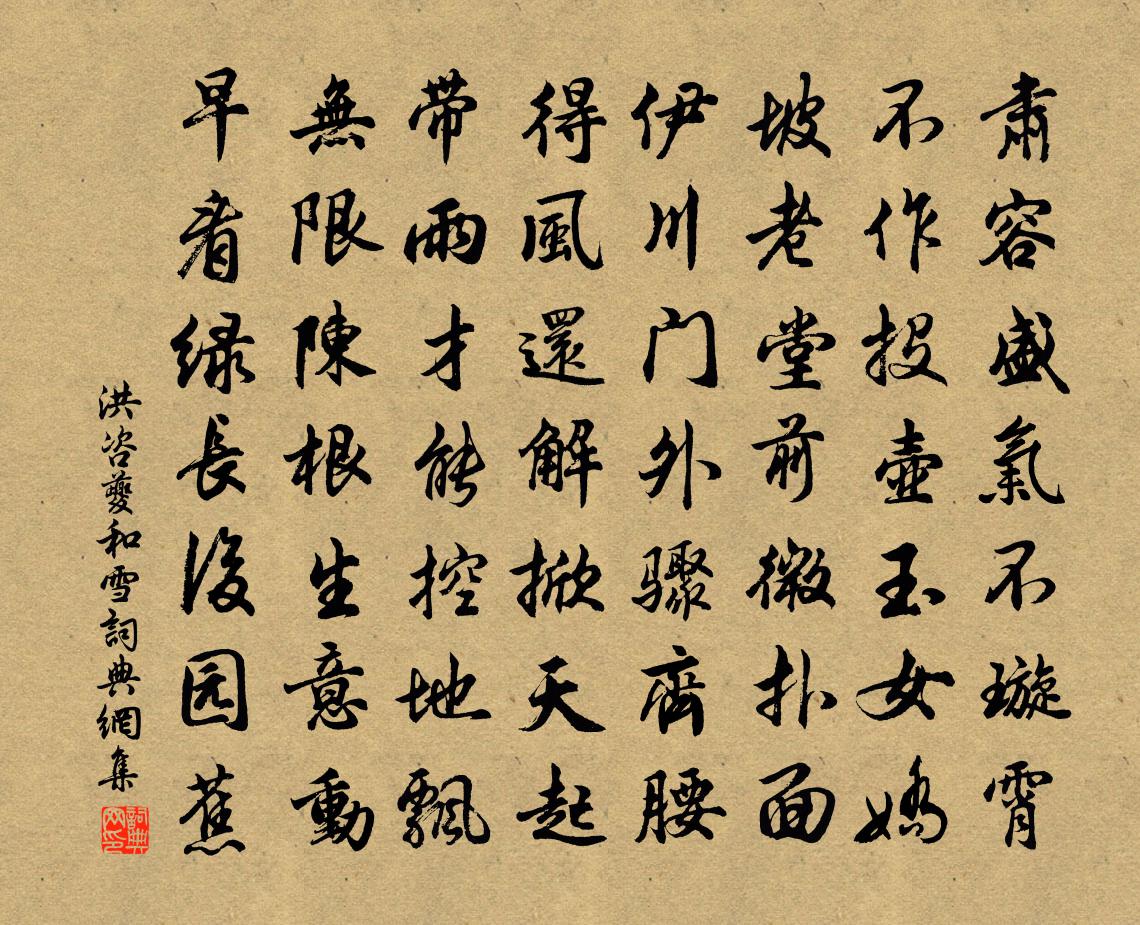 肅容盛氣不璇霄
不作投壺玉女嬌
坡老堂前微扑面
伊川门外驟齊腰
得風還解掀天起
帶雨才能控地飄
無限陳根生意動
早看绿長後园蕉
洪咨夔和雪詞典網集
詞典网印